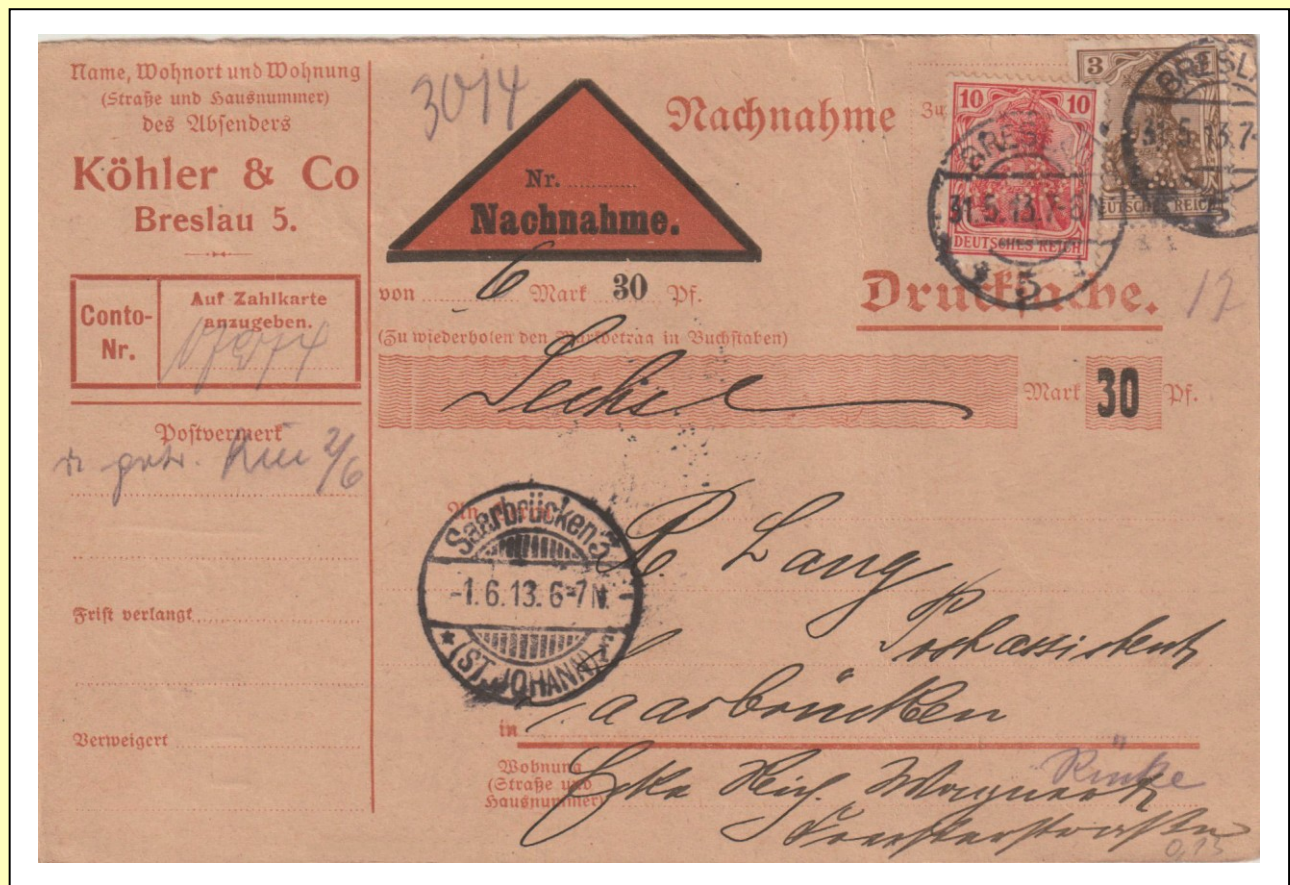 Name, Wohnort und Wohnung
(Straße und Hausnummer)
des Absenders
Köhler & Co
Breslau 5.
Conto-
Nr.
Auf Zahlkarte
anzugeben.
Postvermerk
2/6
Frist verlangt
Verweigert
3014
Nr.
Nachnahme.
Nachnahme
3
10 10
DEUTSCHES REICH
DEUTSCHES REICH
BRESLA
31.5.13.7-
5
BRES
31.5.13.7-8N
5
von 6 Mark 30 Pf.
Drucksache.
(Zu wiederholen den Markbetrag in Buchstaben)
Sechs Mark 30 Pf.
Saarbrücken 3
-1.6.13. 6-7N.
* (ST. JOHANN)
R Lang
Postassistent
in Saarbrücken
Wohnung
(Straße und
Hausnummer)
Ecke
0,15